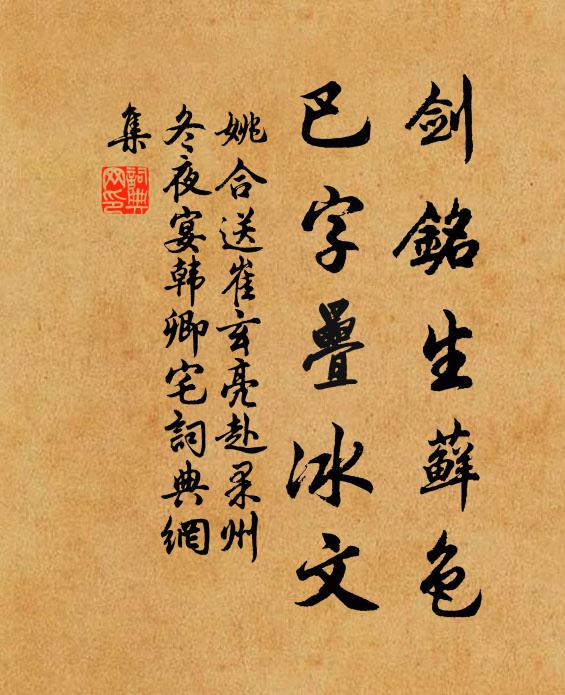 剑銘生蘚色
巳字疊冰文
姚合送崔玄亮赴果州
冬夜宴韩卿宅詞典網
集
詞典
网印